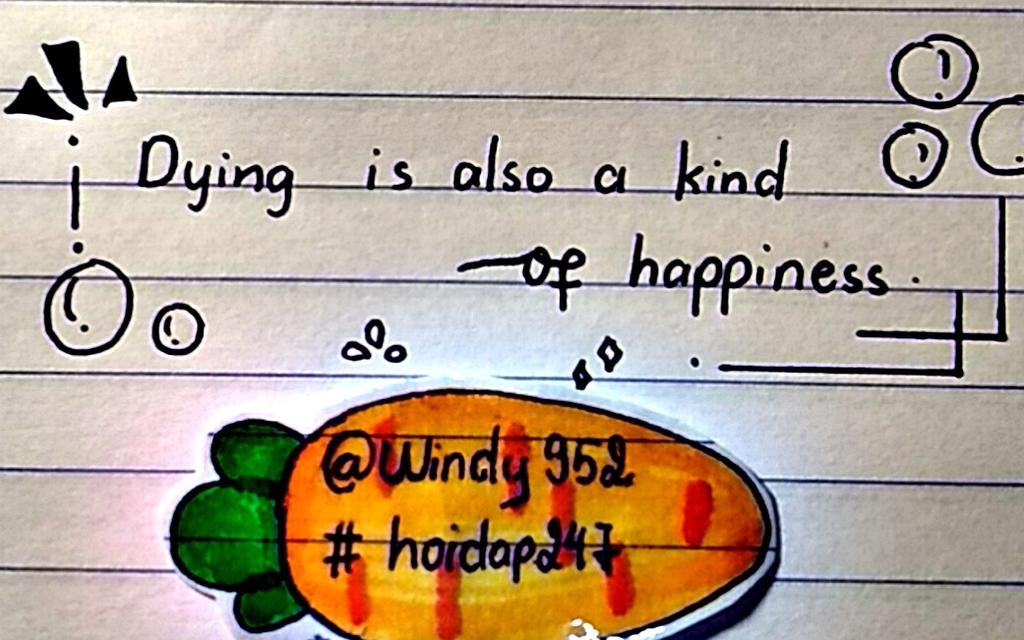 Dying is also a kind
of happiness.
@Windy952
# hoidap247